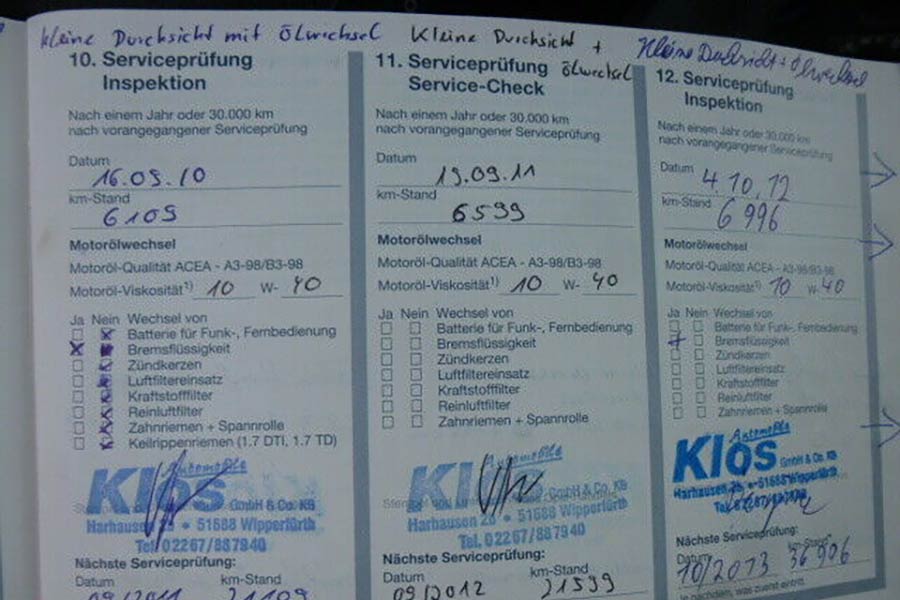 kleine Durchsicht mit Ölwechsel
10. Serviceprüfung
Inspektion
Nach einem Jahr oder 30.000 km
nach vorangegangener Serviceprüfung
Datum
16.09.10
km-Stand
6109
Motorölwechsel
Motoröl-Qualität ACEA - A3-98/B3-98
Motoröl-Viskosität¹⁾ 10 W- 40
Ja Nein Wechsel von
Batterie für Funk-, Fernbedienung
Bremsflüssigkeit
Zündkerzen
Luftfiltereinsatz
Kraftstofffilter
Reinluftfilter
Zahnriemen + Spannrolle
Keilrippenriemen (1.7 DTI, 1.7 TD)
Automobile
Klos GmbH & Co. KG
Harhausen 28 • 51688 Wipperfürth
Tel. 02267/887940
Nächste Serviceprüfung:
Datum km-Stand
09/2011 21109
Kleine Durchsicht +
Ölwechsel
11. Serviceprüfung
Service-Check
Nach einem Jahr oder 30.000 km
nach vorangegangener Serviceprüfung
Datum
19.09.11
km-Stand
6599
Motorölwechsel
Motoröl-Qualität ACEA - A3-98/B3-98
Motoröl-Viskosität¹⁾ 10 W- 40
Ja Nein Wechsel von
Batterie für Funk-, Fernbedienung
Bremsflüssigkeit
Zündkerzen
Luftfiltereinsatz
Kraftstofffilter
Reinluftfilter
Zahnriemen + Spannrolle
Automobile
Klos GmbH & Co. KG
Harhausen 28 • 51688 Wipperfürth
Tel. 02267/887940
Nächste Serviceprüfung:
Datum km-Stand
09/2012 21599
Kleine Durchsicht + Ölwechsel
12. Serviceprüfung
Inspektion
Nach einem Jahr oder 30.000 km
nach vorangegangener Serviceprüfung
Datum
4.10.12
km-Stand
6996
Motorölwechsel
Motoröl-Qualität ACEA - A3-98/B3-98
Motoröl-Viskosität¹⁾ 10 W- 40
Ja Nein Wechsel von
Batterie für Funk-, Fernbedienung
Bremsflüssigkeit
Zündkerzen
Luftfiltereinsatz
Kraftstofffilter
Reinluftfilter
Zahnriemen + Spannrolle
Automobile
Klos GmbH & Co. KG
Harhausen 28 • 51688 Wipperfürth
Tel. 02267/887940
Nächste Serviceprüfung:
Datum km-Stand
10/2013 36996
Je nachdem, was zuerst eintritt.